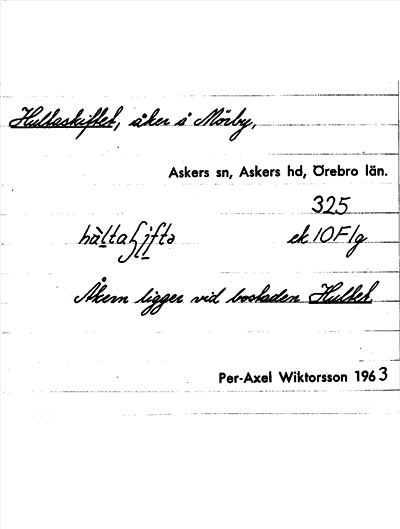 Hultaskiftet, åker å Mörby,
Askers sn, Askers hd, Örebro län.
325
ek 10F1g
Åkern ligger vid bostaden Hultet
Per-Axel Wiktorsson 1963